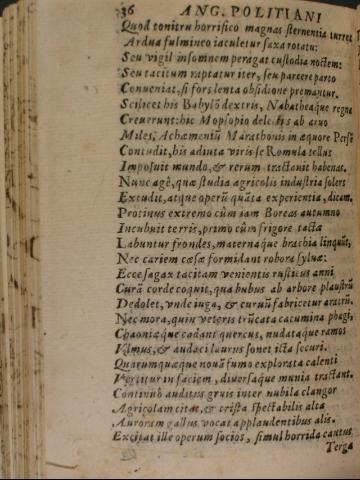 36 ANG. POLITIANI
Quod tonitru horrifico magnas sternentia turres
Ardua fulmineo iaculetur saxa rotatu:
Seu vigil insomnem peragat custodia noctem:
Seu tacitum raptatur iter, seu parcere parto
Conueniat, si fors lenta obsidione premantur.
Scilicet his Babylō dextris, Nabatheaque regna
Creuerunt: hic Mopsopio delectus ab aruo
Miles, Achæmeniū Marathonis in æquore Persē
Contudit, his adiuta viris se Romula tellus
Imposuit mundo, & rerum tractauit habenas.
Nunc agè, quæ studia agricolis industria solers
Extudit, atque operū quāta experientia, dicam.
Protinus extremo cùm iam Boreas autumno
Incubuit terris, primo cùm frigore tacta
Labuntur frondes, maternaque brachia linquūt,
Nec cariem cæsæ formidant robora syluæ:
Ecce sagax tacitam venientis rusticus anni
Curā corde coquit, qua bubus ab arbore plaustrū
Dedolet, vnde iuga, & curuū fabricetur aratrū.
Nec mora, quin veteris trūcata cacumina phagi,
Chaoniæque cadant quercus, nudataque ramos
Vlmus, & audaci laurus sonet icta securi.
Quarumquæque nouā fumo explorata calenti
Vertitur in faciem, diuersaque munia tractant.
Continuò auditus gruis inter nubila clangor
Agricolam citat, & crista spectabilis alta
Auroram gallus vocat applaudentibus alis.
Excitat ille operum socios, simul horrida cautus
Terga